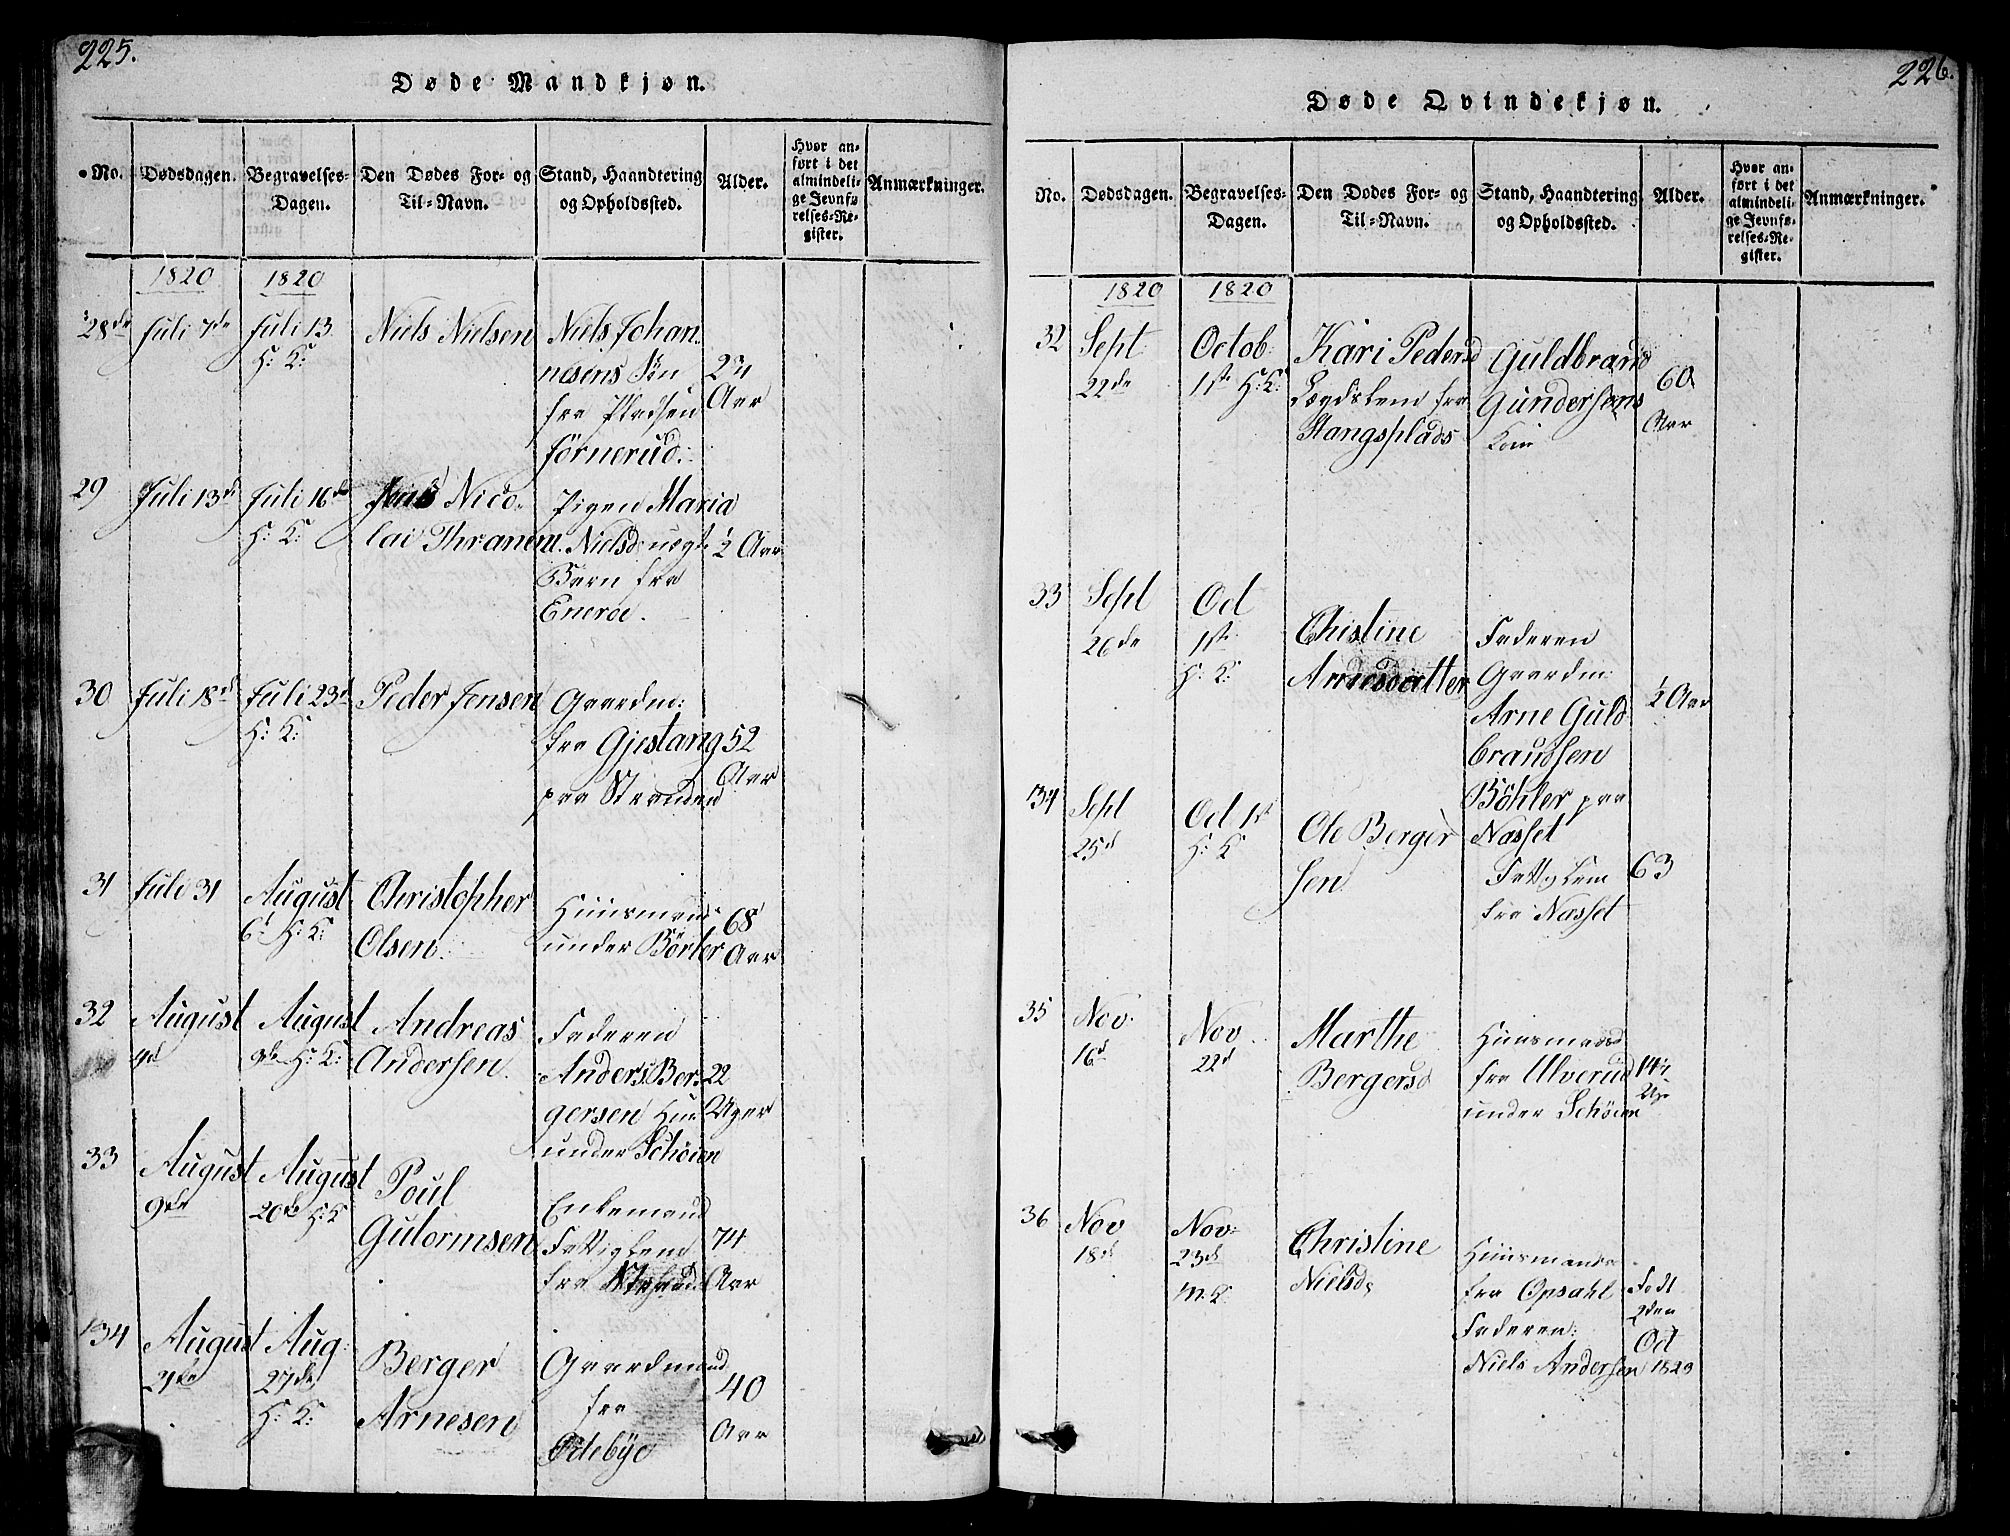 225.
Døde Mandkjøn.
No.
Dødsdagen.
Begravelses-
Dagen.
Den Dødes For- og
Til-Navn.
Stand, Haandtering
og Opholdssted.
Alder.
Hvor an-
ført i det
almindeli-
ge Jevnfø-
relses-Re-
gister.
Anmærkninger.
1820
1820
28de
Juli 7de
Juli 13
H: K:
Niels Nielsen
Niels Johan
nesens Søn
fra Pladsen
Jörnerud.
24
Aar
29
Juli 13de
Juli 16de
H: K:
Nico-
lai Thranem
Pigen Maria
Nielsd: uægt
Barn fra
Eneroe.
½ Aar
30
Juli 18de
Juli 23de
H: K:
Peder Jensen
Gaardm:
fra Gjestang
paa Stranden
52
Aar
31
Juli 31
August
6t H: K:
Christopher
Olsen.
Huusmand
under Börter
68
Aar
32
August
4d
August
9de H: K:
Andreas
Andersen
Faderen
Anders Ber-
gersen Huus
under Schöien
22
Uger
33
August
9de
August
20de H: K
Poul
Gulormsen
Enkemand
Fattiglem
fra
74
Aar
34
August
Aug:
27de
H: K:
Berger
Arnesen
Gaardmand
fra
Odebye
40
Aar
226.
Døde Qvindekjøn.
No.
Dødsdagen.
Begravelses-
Dagen.
Den Dødes For- og
Til-Navn.
Stand, Haandtering
og Opholdssted.
Alder.
Hvor an-
ført i det
almindeli-
ge Jevnfø-
relses-Re-
gister.
Anmærkninger.
1820
1820
32
Sept
22de
Octob:
1ste H: K:
Kari Pedersd
Lægdslem fra
Stangsplads
Guldbrand
Gundersens
Kone
60
Aar
33
Sept
26de
Oct
1ste
H: K:
Christine
Arnesdatter
Faderen
Gaardm:
Arne Guld
brandsen
Böhler paa
Næsset
½ Aar
34
Sept
25d
Oct 1ste
H: K
Ole Berger
sen
Fattiglem
fra Næsset
63
35
Nov:
16d
Nov
22d
Marthe
Bergersd
Huusmands
fra Ulverud
under Schöien
14
Uger
36
Nov
18de
Nov:
23de
M: K
Christine
Nielsd:
Huusmands
fra Opsahl
Faderen:
Niels Andersen
Födt
2den
Oct
1820